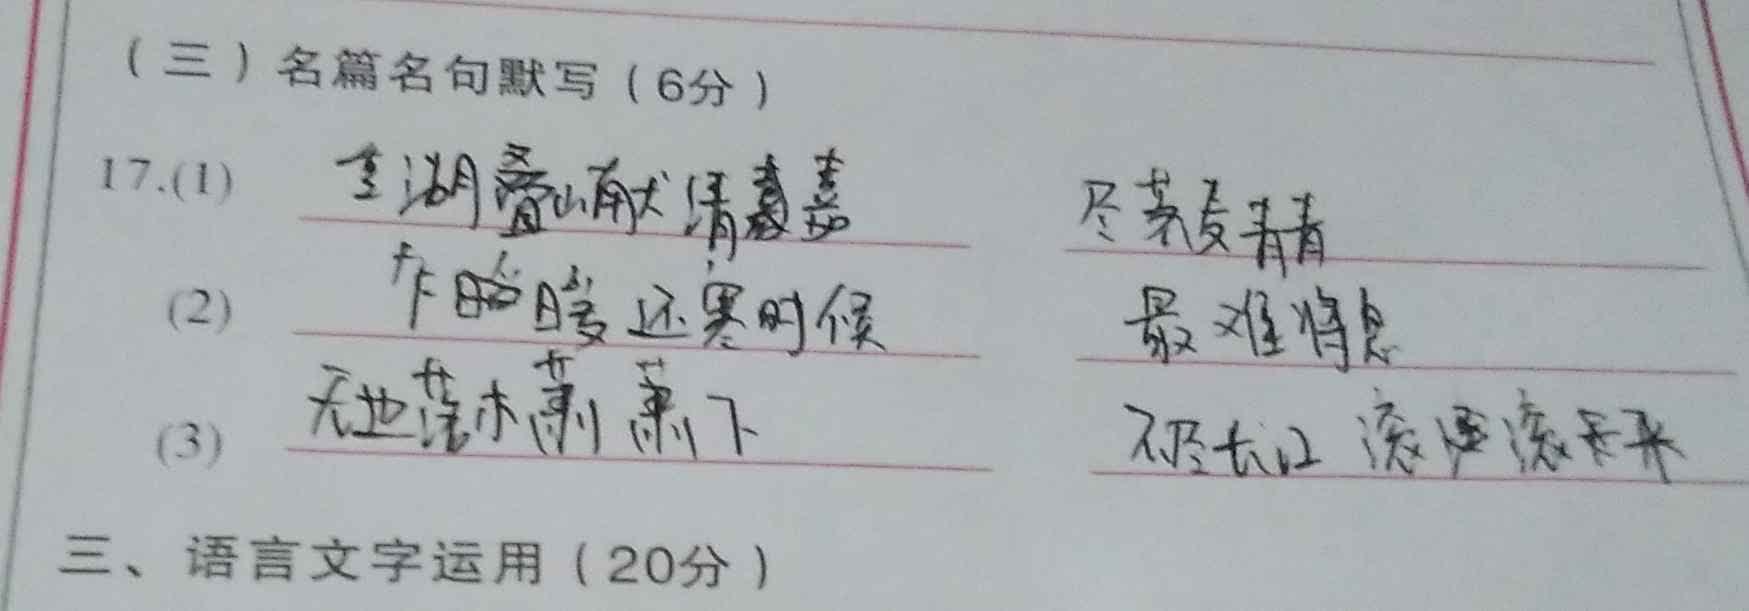 (三)名篇名句默写(6分)
17.(1) 重湖叠𪩘清嘉 尽荠麦青青
(2) 乍暖还寒时候 最难将息
(3) 无边落木萧萧下 不尽长江滚滚来
三、语言文字运用(20分)